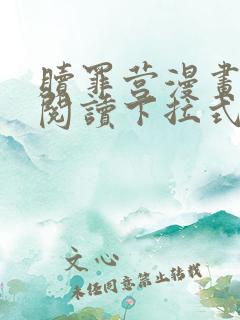 贖罪营漫畫
閱讀下拉式
文心
未经同意禁止转载